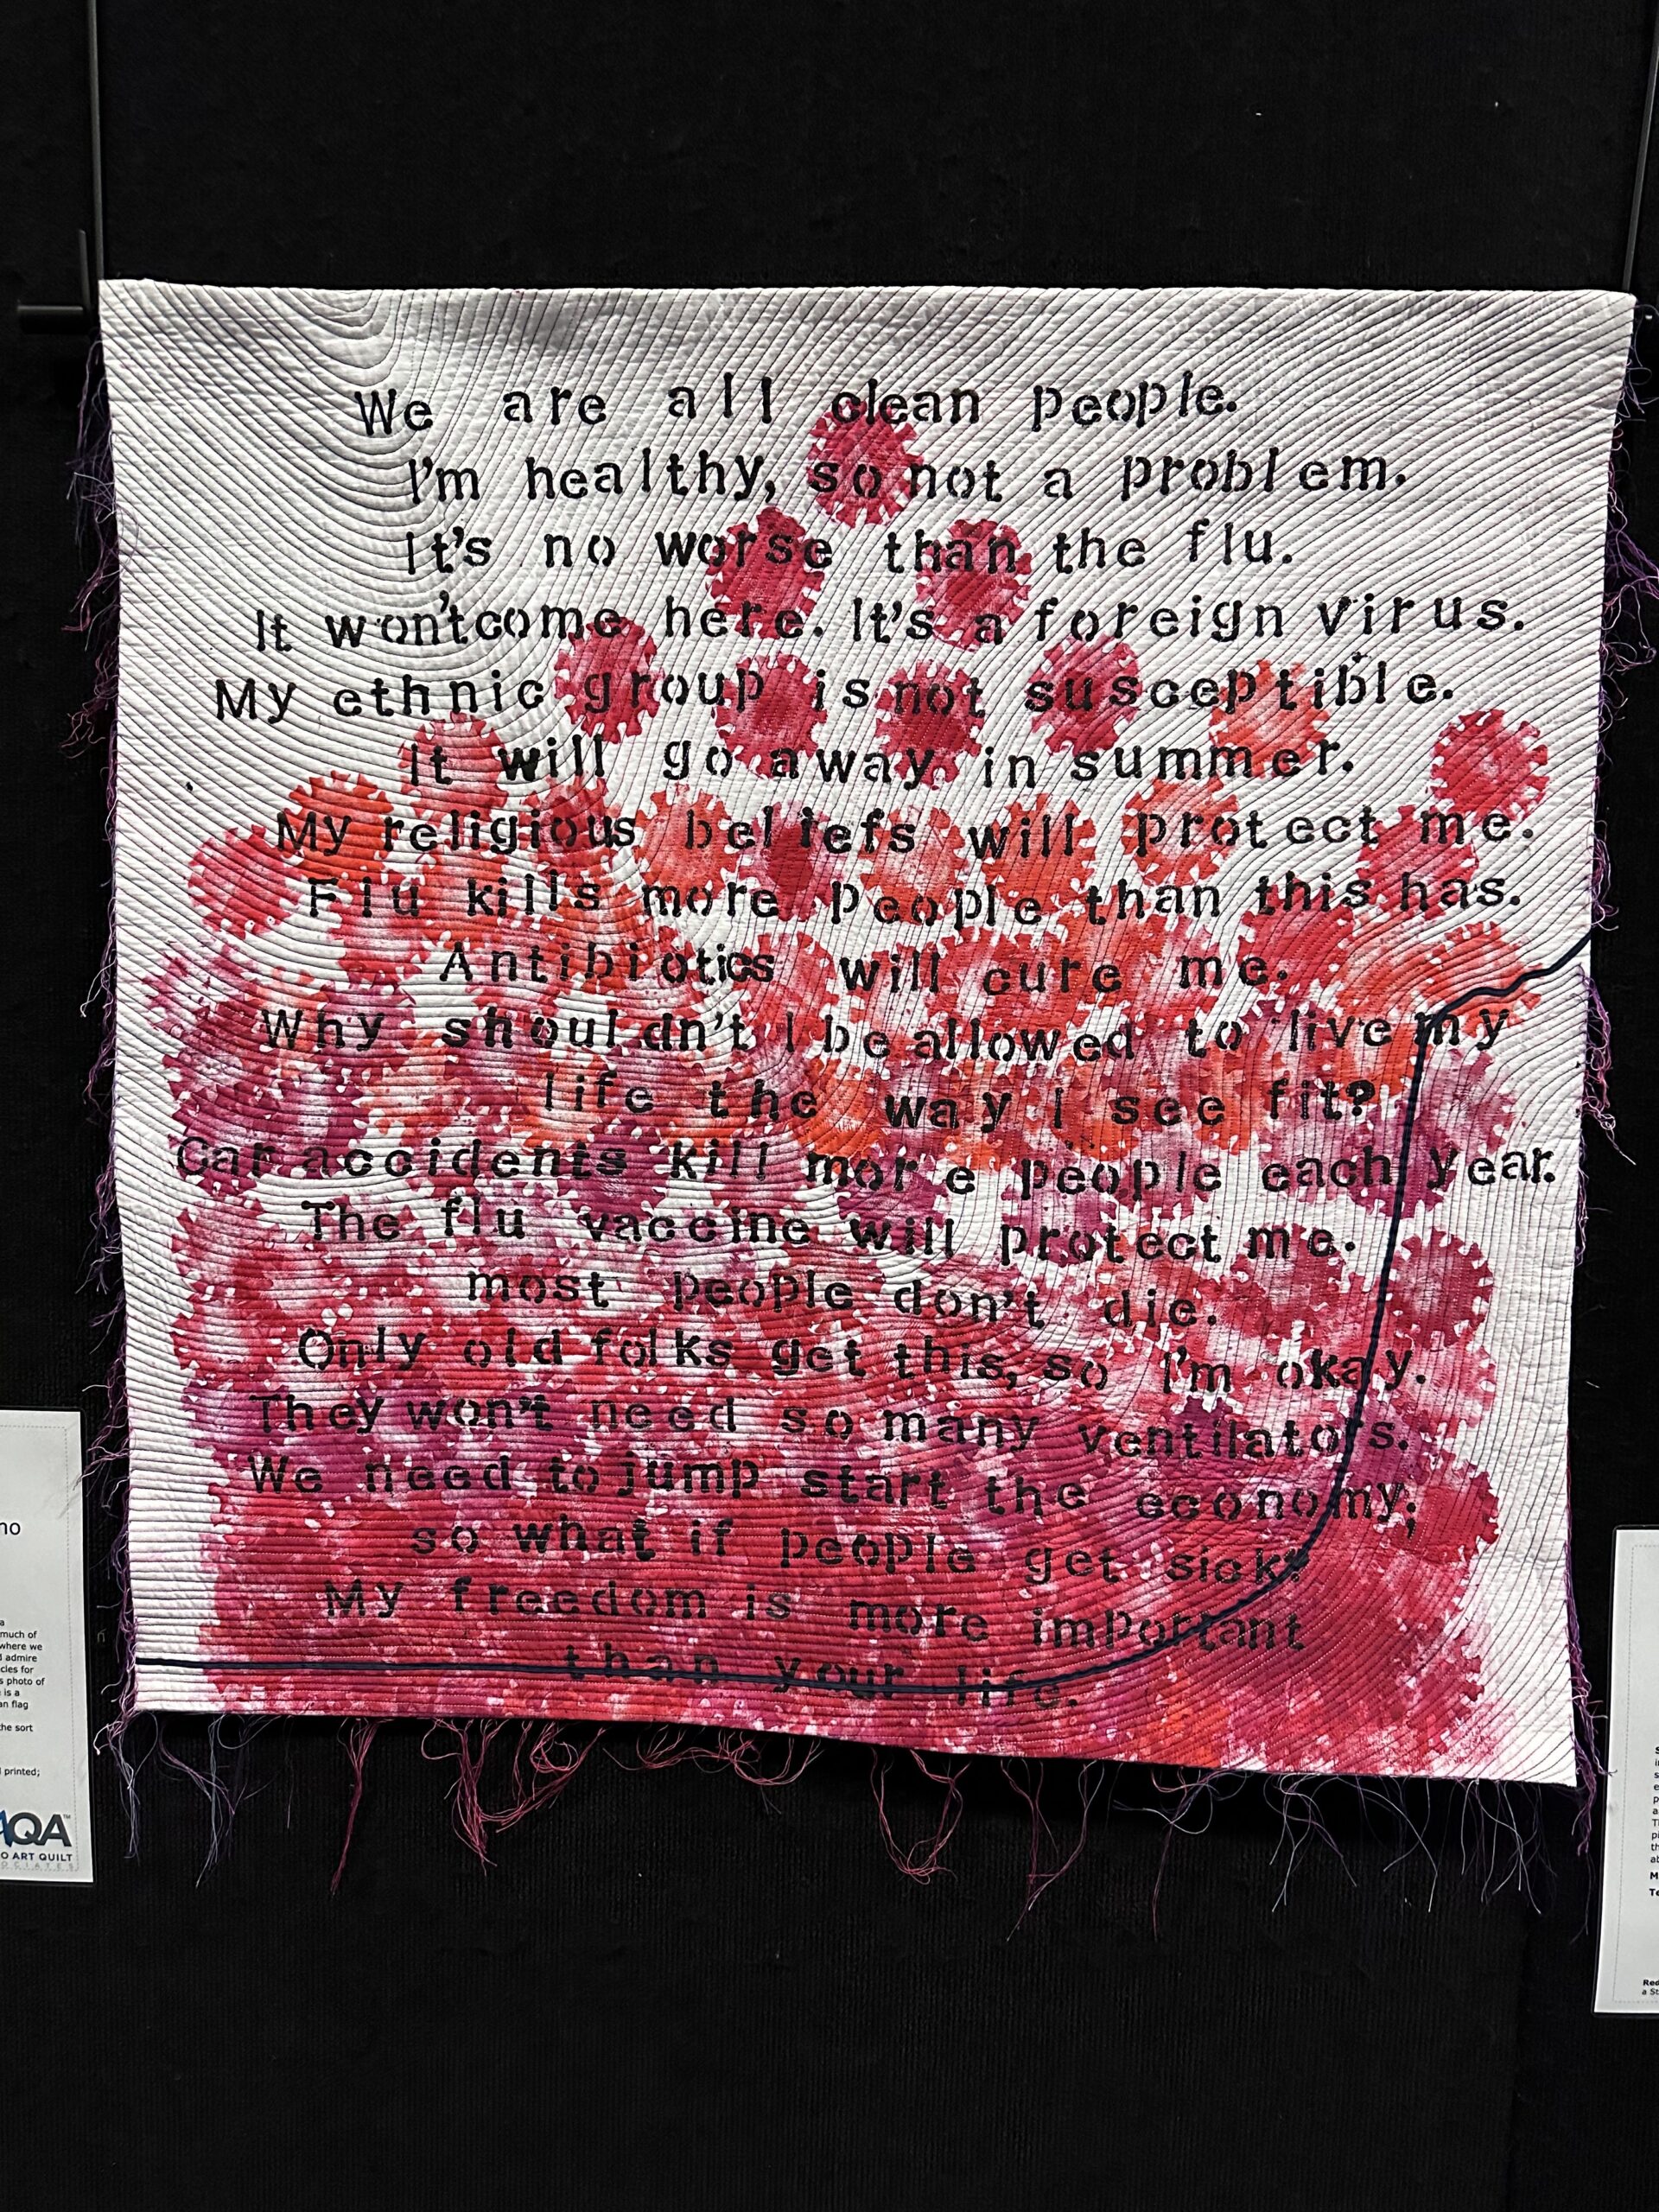 We are all clean people.
I'm healthy, so not a problem.
It's no worse than the flu.
It won't come here. It's a foreign virus.
My ethnic group is not susceptible.
It will go away in summer.
My religious beliefs will protect me.
Flu kills more people than this has.
Antibiotics will cure me.
Why shouldn't I be allowed to live my
life the way I see fit?
Car accidents kill more people each year.
The flu vaccine will protect me.
most people don't die.
Only old folks get this, so I'm okay.
They won't need so many ventilators.
We need to jump start the economy;
so what if people get sick?
My freedom is more important
than your life.
no
a
much of
where we
admire
cles for
s photo of
is a
an flag
the sort
printed;
AQA
O ART QUILT
OCIATES
Red
a St